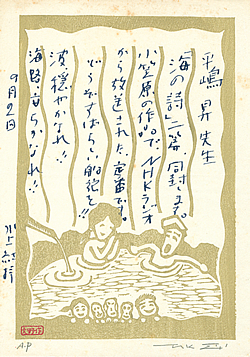 平嶋 昇 先生
「海の詩」二篇、同封します。
小笠原の作品で、NHKラジオ
から放送された、定番です。
どうぞすばらしい船旅を!!
波 穏やかなれ!!
海路 安らかなれ!!
9月2日
A.P